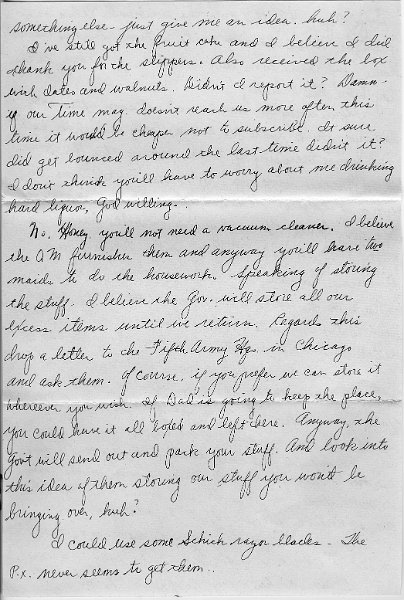 something else - just give me an idea. huh?
I've still got the fruit cake and I believe I did
thank you for the slippers. Also received the box
with dates and walnuts. Didn't I report it? Damn -
if our Time may. doesn't reach us more often this
time it would be cheaper not to subscribe. It sure
did get bounced around the last time didn't it?
I don't think you'll have to worry about me drinking
hard liquor, God willing -.
No, Honey you'll not need a vacuum cleaner. I believe
the QM furnishes them and anyway you'll have two
maids to do the housework. Speaking of storing
the stuff. I believe the Gov. will store all our
excess items until we return. Regards this
drop a letter to the Fifth Army Hqs. in Chicago
and ask them. Of course, if you prefer we can store it
wherever you wish. If Dad is going to keep the place,
you could have it all boxed and left there. Anyway, the
Gov't will send out and pack your stuff. And look into
this idea of them storing our stuff you won't be
bringing over, huh?
I could use some Schick razor blades - The
P.x. never seems to get them..